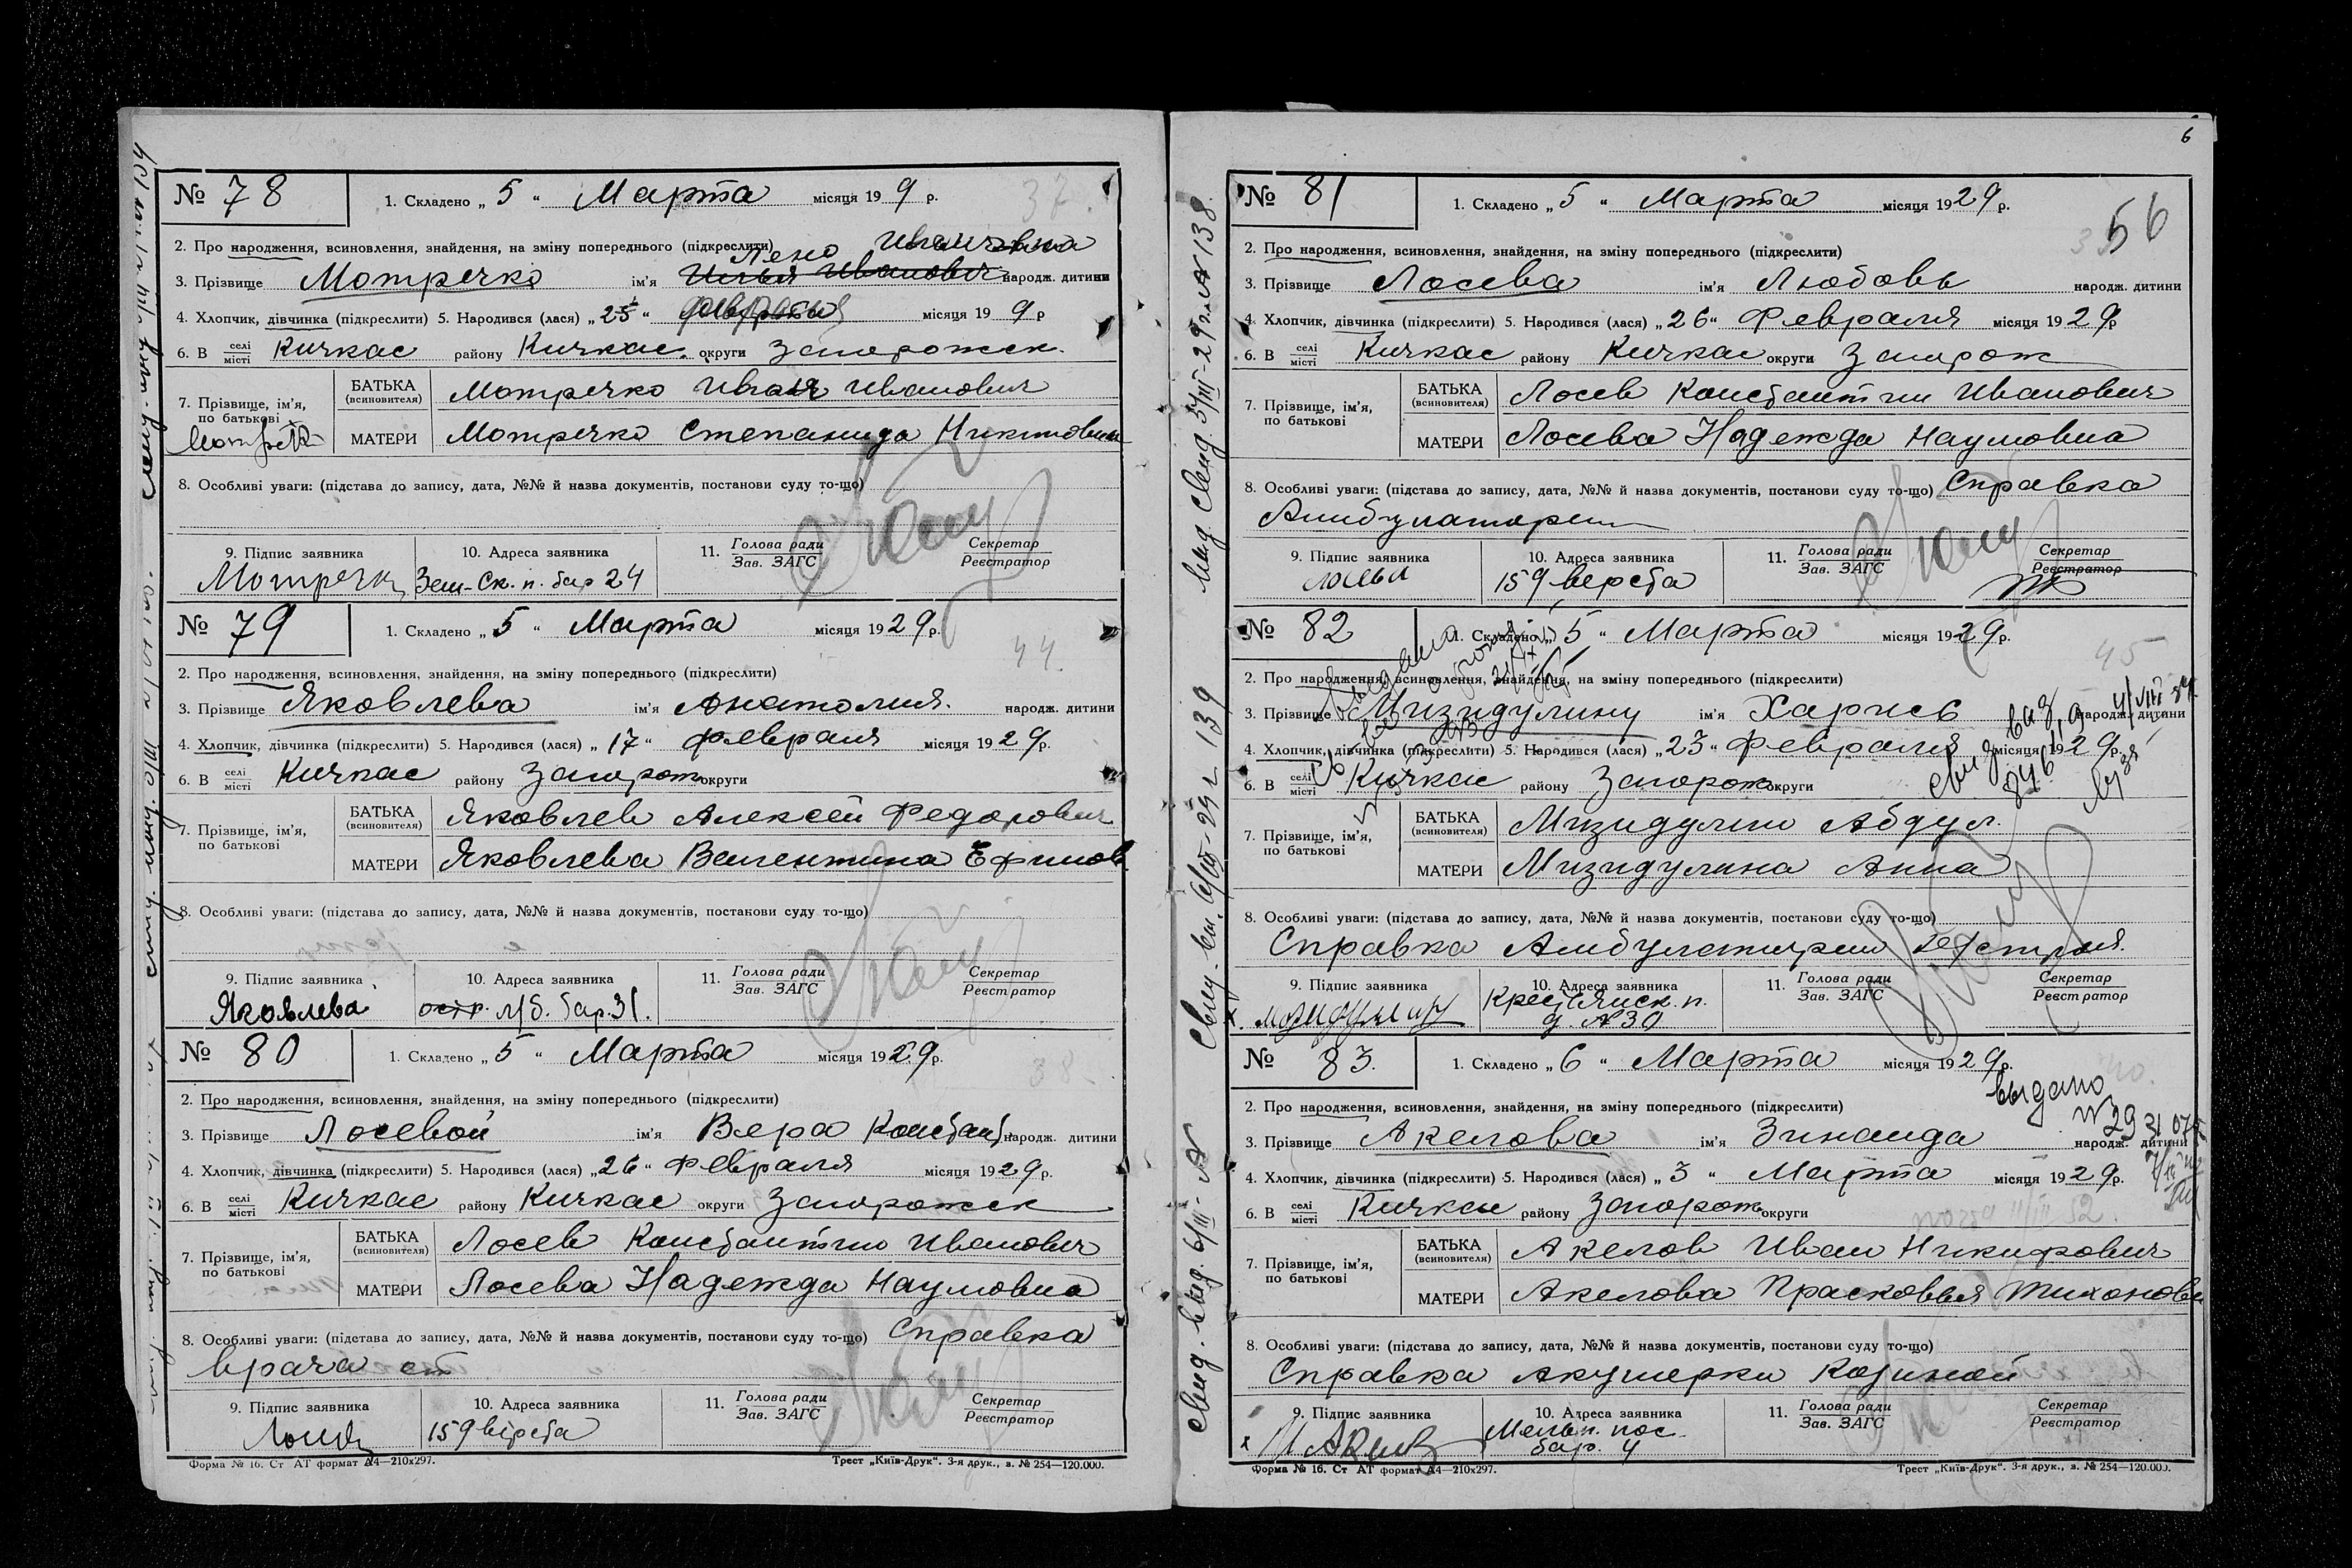 № 78
1. Складено „ 5 “ Марта місяця 19 9 р.
37.
2. Про народження, всиновлення, знайдення, на зміну попереднього (підкреслити)
Лена Ивановна
3. Прізвище Мотречко ім'я Иванович народж. дитини
4. Хлопчик, дівчинка (підкреслити) 5. Народився (лася) „ 25 “ февраля місяця 19 9 р
6. В селі місті Кичкас району Кичкас. округи Запорожск.
7. Прізвище, ім'я, по батькові
БАТЬКА (всиновителя) Мотречко Иван Иванович
МАТЕРИ Мотречко Степанида
8. Особливі уваги: (підстава до запису, дата, №№ й назва документів, постанови суду то-що)
9. Підпис заявника Мотречк
10. Адреса заявника бар 24
11. Голова ради Зав. ЗАГС
Секретар Реєстратор
№ 79
1. Складено „ 5 “ Марта місяця 1929р.
44.
2. Про народження, всиновлення, знайдення, на зміну попереднього (підкреслити)
3. Прізвище Яковлева ім'я Анатолия. народж. дитини
4. Хлопчик, дівчинка (підкреслити) 5. Народився (лася) „ 17 “ февраля місяця 1929р.
6. В селі місті Кичкас району Запорож округи
7. Прізвище, ім'я, по батькові
БАТЬКА (всиновителя) Яковлев Алексей Федорович
МАТЕРИ Яковлева Валентина Ефимов
8. Особливі уваги: (підстава до запису, дата, №№ й назва документів, постанови суду то-що)
9. Підпис заявника Яковлева
10. Адреса заявника бар. 31.
11. Голова ради Зав. ЗАГС
Секретар Реєстратор
№ 80
1. Складено „ 5 “ Марта місяця 1929р.
38.
2. Про народження, всиновлення, знайдення, на зміну попереднього (підкреслити)
3. Прізвище Лосевой ім'я Вера Констант народж. дитини
4. Хлопчик, дівчинка (підкреслити) 5. Народився (лася) „ 26 “ Февраля місяця 1929р.
6. В селі місті Кичкас району Кичкас округи Запорожск
7. Прізвище, ім'я, по батькові
БАТЬКА (всиновителя) Лосев Константин Иванович
МАТЕРИ Лосева Надежда Наумовна
8. Особливі уваги: (підстава до запису, дата, №№ й назва документів, постанови суду то-що) Справка
врача от
9. Підпис заявника
10. Адреса заявника 159 верста
11. Голова ради Зав. ЗАГС
Секретар Реєстратор
Форма № 16. Ст АТ формат А4—210х297.
Трест „Київ-Друк“. 3-я друк., з. № 254—120.000.
6
№ 81
1. Складено „ 5 “ Марта місяця 1929р.
56
2. Про народження, всиновлення, знайдення, на зміну попереднього (підкреслити)
3. Прізвище Лосева ім'я Любовь народж. дитини
4. Хлопчик, дівчинка (підкреслити) 5. Народився (лася) „ 26 “ Февраля місяця 1929р
6. В селі місті Кичкас району Кичкас округи Запорож
7. Прізвище, ім'я, по батькові
БАТЬКА (всиновителя) Лосев Константин Иванович
МАТЕРИ Лосева Надежда Наумовна
8. Особливі уваги: (підстава до запису, дата, №№ й назва документів, постанови суду то-що) Справка
Амбулатории
9. Підпис заявника Лосева
10. Адреса заявника 159 верста
11. Голова ради Зав. ЗАГС
Секретар Реєстратор
№ 82
1. Складено „ 5 “ Марта місяця 1929р.
45
2. Про народження, всиновлення, знайдення, на зміну попереднього (підкреслити)
3. Прізвище Мизидулину ім'я Харись народж. дитини
4. Хлопчик, дівчинка (підкреслити) 5. Народився (лася) „ 23 “ Февраля місяця 1929р.
6. В селі місті Кичкас району Запорож округи
7. Прізвище, ім'я, по батькові
БАТЬКА (всиновителя) Мизидулин Абдул.
МАТЕРИ Мизидулина Анна
8. Особливі уваги: (підстава до запису, дата, №№ й назва документів, постанови суду то-що)
Справка Амбулатории
9. Підпис заявника
10. Адреса заявника Крестьянск. п. д. №30
11. Голова ради Зав. ЗАГС
Секретар Реєстратор
№ 83.
1. Складено „ 6 “ Марта місяця 1929р.
40.
выдано
№ 29
2. Про народження, всиновлення, знайдення, на зміну попереднього (підкреслити)
3. Прізвище Акелова ім'я Зинаида народж. дитини
4. Хлопчик, дівчинка (підкреслити) 5. Народився (лася) „ 3 “ Марта місяця 1929р.
6. В селі місті Кичкас району Запорож округи
7. Прізвище, ім'я, по батькові
БАТЬКА (всиновителя) Акелов Иван Никифрович
МАТЕРИ Акелова Прасковья Тихоновн
8. Особливі уваги: (підстава до запису, дата, №№ й назва документів, постанови суду то-що)
Справка акушерки Козиной
9. Підпис заявника
10. Адреса заявника Мельн. пос. бар. 4
11. Голова ради Зав. ЗАГС
Секретар Реєстратор
Форма № 16. Ст АТ формат А4—210х297.
Трест „Київ-Друк“. 3-я друк., з. № 254—120.000.